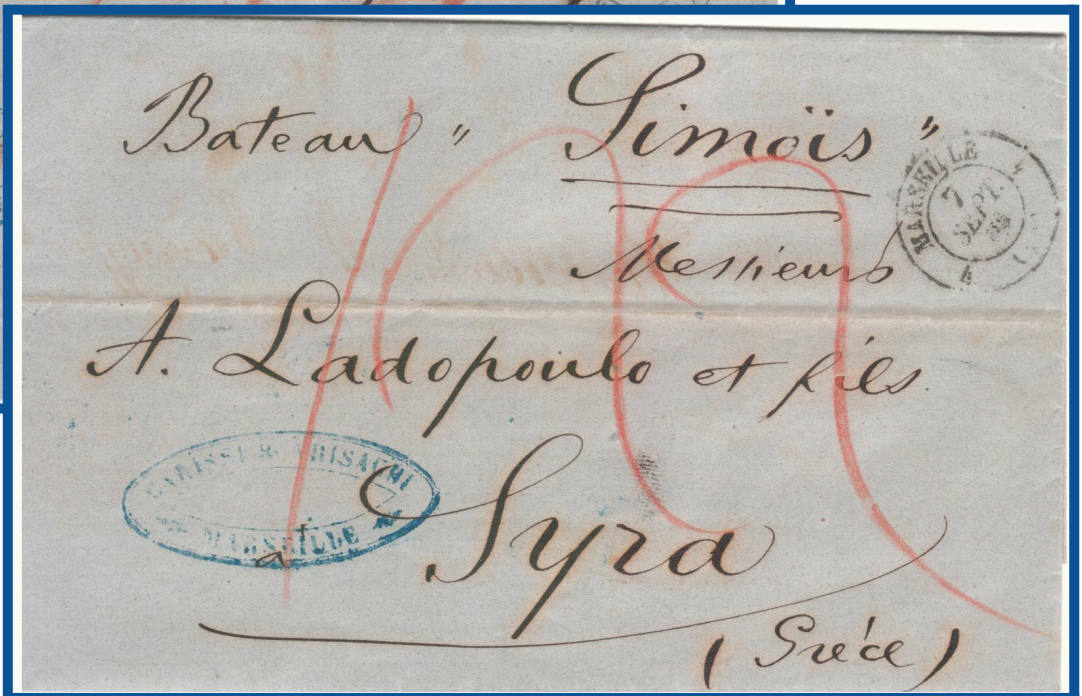 Bateau "Simoïs"
MARSEILLE
7
SEPT.
4
Messieurs
A. Ladopoulo et fils
MARSEILLE
à Syra
(Grèce)